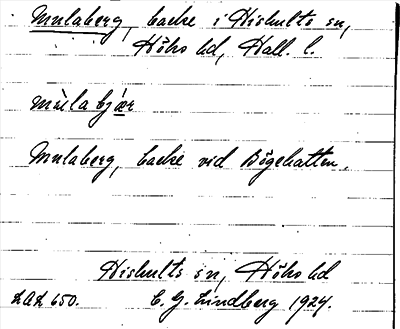 Mulaberg, backe i Hishults sn,
Höks hd, Hall. l.
mùlabjær
Mulaberg, backe vid Bögehatten.
Hishults sn, Höks hd
LAL 650. C. G. Lindberg 1924.